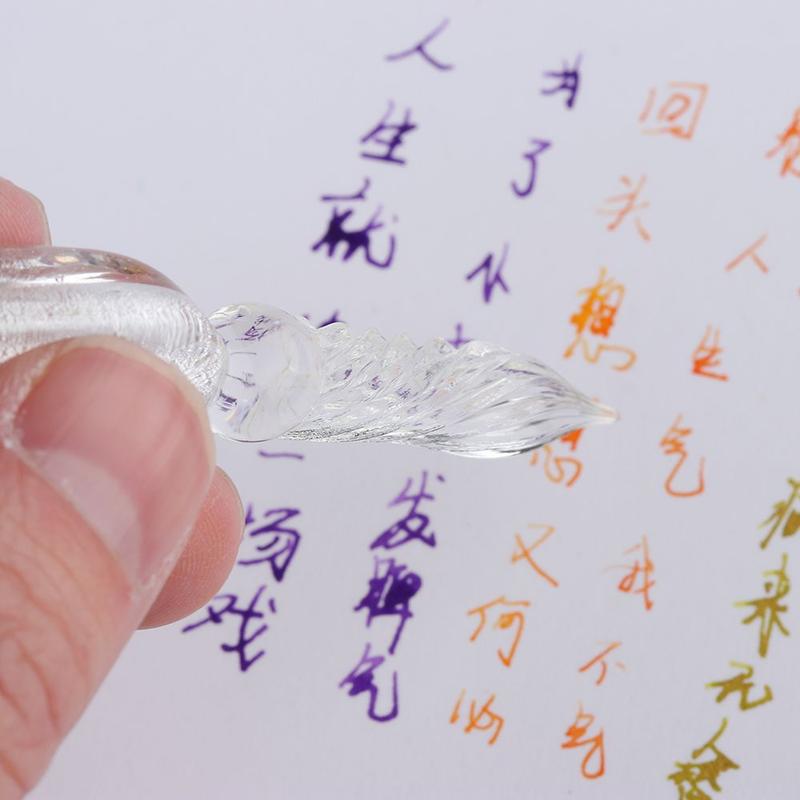 人生就一场戏
为了小发脾气
回头想想又何必
人生气我不
病来无人替